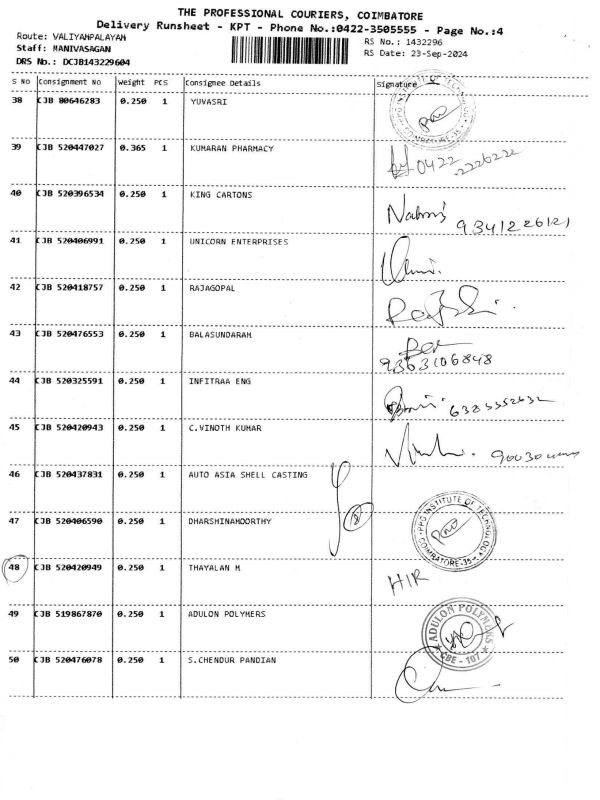 THE PROFESSIONAL COURIERS, COIMBATORE
Delivery Runsheet - KPT - Phone No.:0422-3505555 - Page No.:4
Route: VALIYAMPALAYAM
RS No.: 1432296
Staff: MANIVASAGAN
RS Date: 23-Sep-2024
DRS No.: DCJB143229604
S No Consignment No Weight PCS Consignee Details Signature
38 CJB 80646283 0.250 1 YUVASRI
PPG INSTITUTE OF TECHNOLOGY COIMBATORE-35
39 CJB 520447027 0.365 1 KUMARAN PHARMACY
0422 2226222
40 CJB 520396534 0.250 1 KING CARTONS
9341226121
41 CJB 520406991 0.250 1 UNICORN ENTERPRISES
42 CJB 520418757 0.250 1 RAJAGOPAL
43 CJB 520476553 0.250 1 BALASUNDARAM
9363106848
44 CJB 520325591 0.250 1 INFITRAA ENG
45 CJB 520420943 0.250 1 C.VINOTH KUMAR
46 CJB 520437831 0.250 1 AUTO ASIA SHELL CASTING
47 CJB 520406590 0.250 1 DHARSHINAMOORTHY
PPG INSTITUTE OF TECHNOLOGY COIMBATORE-35
48 CJB 520420949 0.250 1 THAYALAN M
HIR
49 CJB 519867870 0.250 1 ADULON POLYMERS
ADULON POLYMERS CBE - 107
50 CJB 520476078 0.250 1 S.CHENDUR PANDIAN